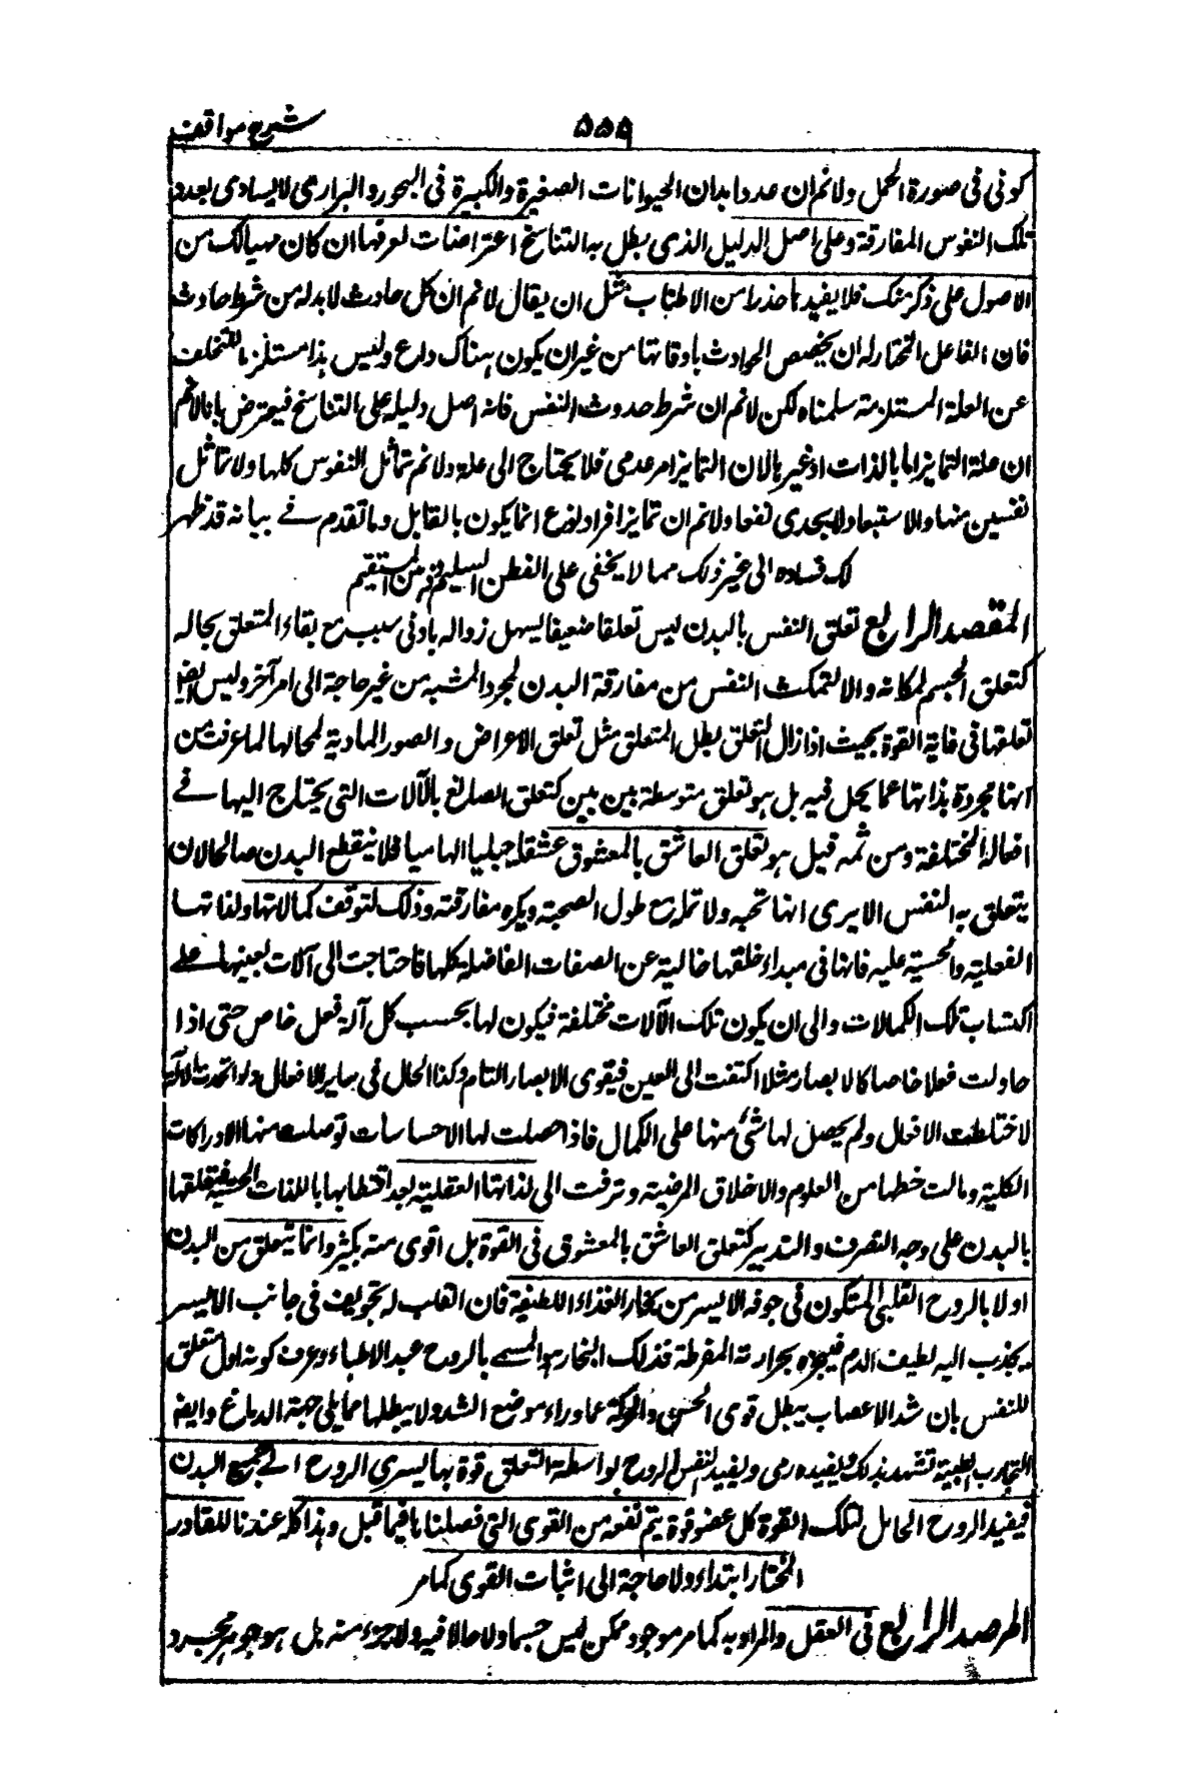 شرح مواقف
۵۵۹
كونى فى صورة الحمل ولا نم ان عدد ابدان الحيوانات الصغيرة والكبيرة فى البحور و البرارى لا يساوى بعدد
تلك النفوس المفارقة وعلى اصل الدليل الذى بطل به التناسخ اعتراضات تعرفها ان كان مهيا لك من
الاصول على ذكر منك فلا يفيد ها حذرا من الاطناب مثل ان يقال لا نم ان كل حادث لا بد له من شرط حادث
فان الفاعل المختار له ان يخصص الحوادث باوقاتها من غير ان يكون هناك داع وليس هذا مستلزما للتخلف
عن العلة المستلزمة سلمناه لكن لا نم ان شرط حدوث النفس فانه اصل دليله على التناسخ فيعترض بانا لا نم
ان علة التمايز اما بالذات او غيرها لان التمايز امر عدمى فلا يحتاج الى علة ولا نم تماثل النفوس كلها ولا تماثل
نفسين منها والاستبعاد لا يجدى نفعا ولا نم ان تمايز افراد لنوع انما يكون بالقابل وما تقدم فے بيانه قد ظهر
لك فساده الى غير ذلك مما لا يخفى على الفطن السليم ذهن المستقيم
المقصد الرابع تعلق النفس بالبدن ليس تعلقا ضعيفا ليسهل زواله بادنى سبب مع بقاء المتعلق بحاله
كتعلق الجسم لمكانه والا لتمكنت النفس من مفارقة البدن لمجرد المشية من غير حاجة الى امر آخر وليس ايضا
تعلقها فى غاية القوة بحيث اذا زال التعلق بطل المتعلق مثل تعلق الاعراض والصور المادية لمحالها لما عرفت من
انها مجردة بذاتها عما يحل فيه بل هو تعلق متوسط بين بين كتعلق الصانع بالآلات التى يحتاج اليها فے
افعاله المختلفة ومن ثمه قيل هو تعلق العاشق بالمعشوق عشقا جبليا الهاميا فلا ينقطع البدن صالحا لان
يتعلق به النفس الا يرى انها تحبه ولا تمله مع طول الصحبة ويكره مفارقته وذلك لتوقف كمالاتها ولذاتها
الفعلية والحسية عليه فانها فى مبداء خلقها خالية عن الصفات الفاضلة كلها فاحتاجت الى آلات يعينها على
اكتساب تلك الكمالات والى ان يكون تلك الآلات مختلفة فيكون لها بحسب كل آلة فعل خاص حتى اذا
حاولت فعلا خاصا كالابصار مثلا اكتفت الى العين فيقوى الابصار التام وكذا الحال فى ساير الافعال ولو اتحدت الآلة
لاختلطت الافعال ولم يحصل لها شئ منها على الكمال فاذا حصلت لها الاحساسات توصلت منها الادراكات
الكلية ونالت حظها من العلوم والاخلاق المرضية وترقت الى لذاتها العقلية بعد احتظابها باللذات الحسية فتعلقها
بالبدن على وجه التصرف والتدبير كتعلق العاشق بالمعشوق فى القوة بل اقوى منه بكثير وانما يتعلق من البدن
اولا بالروح القلبى المتكون فى جوفه الايسر من بخار الغذاء اللطيفة فان القلب له تجويف فى جانب الايسر
يجذب اليه لطيف الدم فيبخره بحرارته المفرطة فذلك البخار هو المسمے بالروح عند الاطباء وعرف كونه اول متعلق
للنفس بان شد الاعصاب يبطل قوى الحس والحركة عما وراء موضع الشد ولا يبطلها مما يلى جهة الدماغ وايضا
التجارب الطبية تشهد بذلك ويفيده رمى ويفيد لنفس الروح بواسطة التعلق قوة بها يسرى الروح الے جميع البدن
فيفيد الروح الحامل لتلك القوة كل عضو قوة يتم نفعه من القوى التى فصلناها فيما قبل وهذا كله عندنا للقادر
المختار ابتداء ولا حاجة الى اثبات القوى كما مر
المرصد الرابع فى العقل والمراد به كما مر موجود ممكن ليس جسما ولا حالا فيه ولا جزء منه بل هو جوهر مجرد